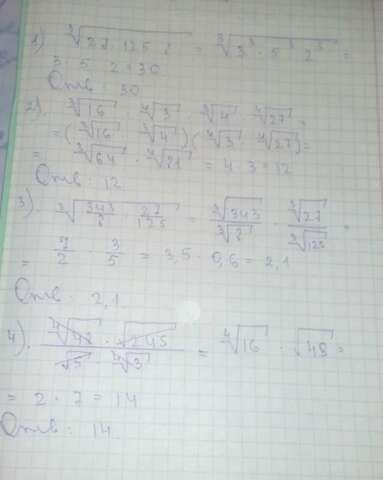 1) ∛(27·125·8) = ∛(3³·5³·2³) =
3·5·2=30
Отв: 30
2). ∛16 · ∜3 · ∛4 · ∜27 =
= (∛16 · ∛4)(∜3 · ∜27) =
= ∛64 · ∜81 = 4·3=12
Отв: 12.
3). ∛(343/8 · 27/125) = ∛343/∛8 · ∛27/∛125 =
= 7/2 · 3/5 = 3,5 · 0,6 = 2,1
Отв: 2,1
4). (∜48 · √245)/(√5 · ∜3) = ∜16 · √49 =
= 2·7=14
Отв: 14.